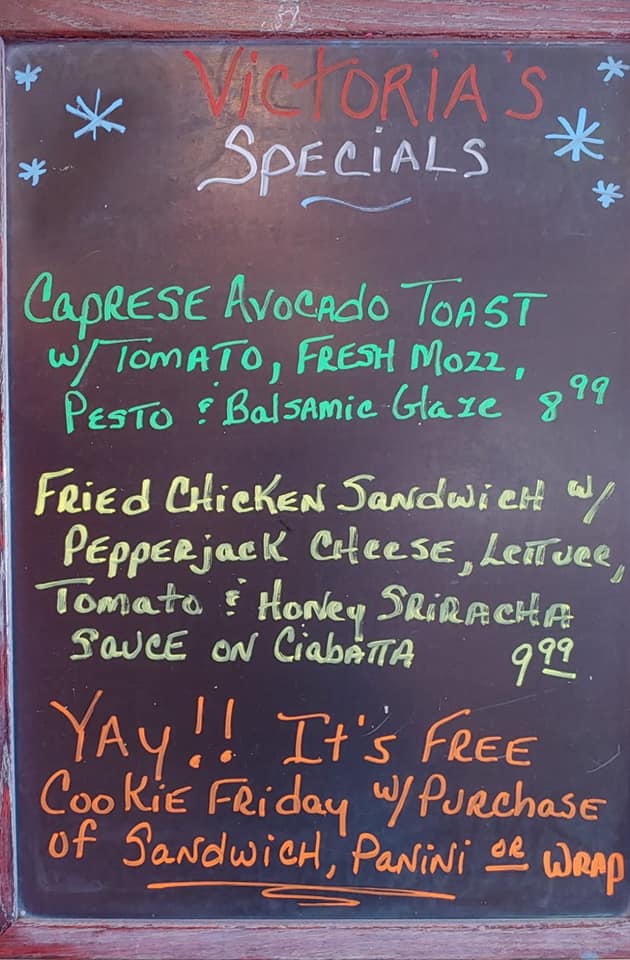 VICTORIA'S
SPECIALS
CAPRESE AVOCADO TOAST
W/TOMATO, FRESH MOZZ,
PESTO & BALSAMIC GLAZE 8 99
FRIED CHICKEN SANDWICH W/
PEPPERJACK CHEESE, LETTUCE,
TOMATO & HONEY SRIRACHA
SAUCE ON CIABATTA 9 99
YAY!! IT'S FREE
COOKIE FRIDAY W/PURCHASE
OF SANDWICH, PANINI OR WRAP